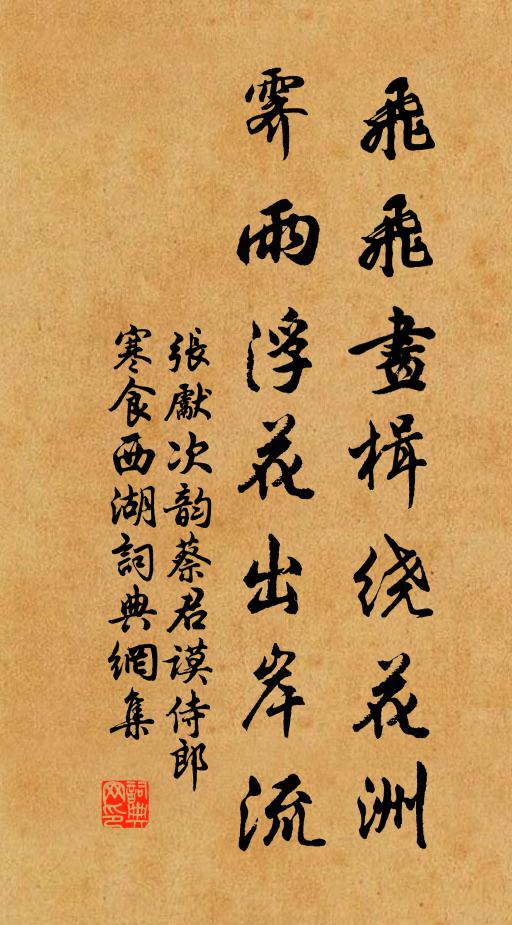 飛飛畫楫绕花洲
霽雨浮花出岸流
張獻次韵蔡君謨侍郎
寒食西湖詞典網集
詞典
网印